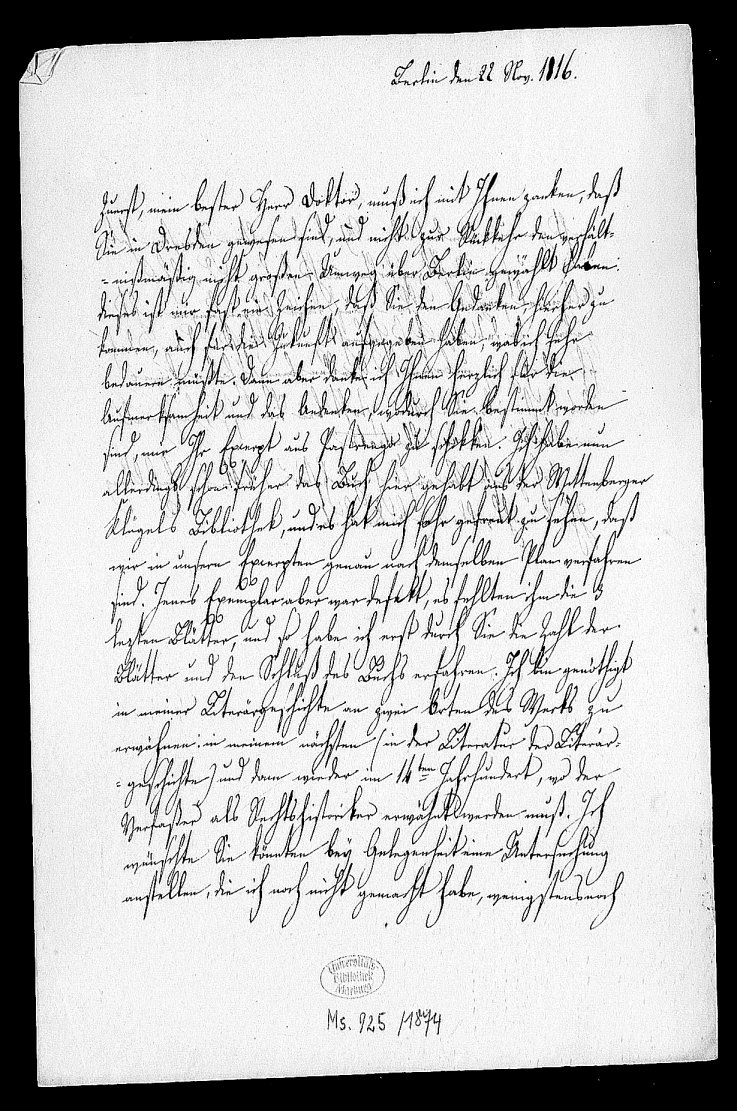 Berlin den 22 Nov. 1816.
Zuerst, mein bester Herr Doktor, muß ich mit Ihnen zanken, daß
Sie in Dresden gewesen sind, und nicht zur Rückkehr den verhält-
-nißmäßig nicht großen Umweg über Berlin gewählt haben.
dieses ist nur fast ein Zeichen, daß Sie den Gedanken, hierher zu
kommen, auch für die Zukunft aufgegeben haben, was ich sehr
bedauern müßte. Dann aber danke ich Ihnen herzlich für die
Aufmerksamkeit und das Andenken, wodurch Sie bestimmt worden
sind, mir Ihr Excerpt aus Pastrengo zu schikken. Ich habe nun
allerdings schon früher das Buch hier gehabt aus der Wittenberger
Klügels Bibliothek, und es hat mich sehr gefreut zu sehen, daß
wir in unsern Excerpten genau nach demselben Plan verfahren
sind. Jenes Exemplar aber war defekt, es fehlten ihm die 3
lezten Blätter, und so habe ich erst durch Sie die Zahl der
Blätter und den Schluß des Buchs erfahren. Ich bin genöthigt
in meiner Literärgeschichte an zwei Orten des Werks zu
erwähnen: in meinem nächsten (in der Literatur der Literär-
-geschichte) und dann wieder im 14ten Jahrhundert, wo der
Verfasser als Rechtshistoriker erwähnt werden muß. Ich
wünschte Sie könnten bey Gelegenheit eine Untersuchung
anstellen, die ich noch nicht gemacht habe, wenigstens noch
Universitäts-
Bibliothek
Marburg
Ms. 925/1874